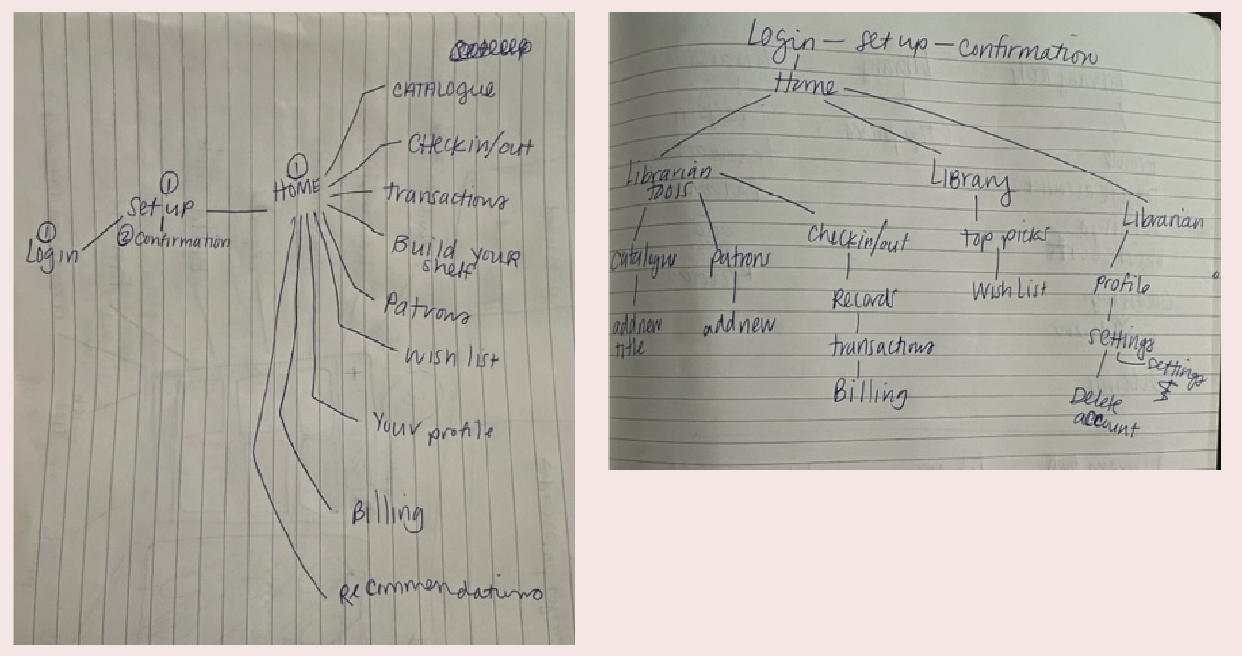 CATALOGUE
Checkin/out
① HOME
transactions
① Set up
② Confirmation
① Login
Build your
shelf
Patrons
wish list
Your profile
Billing
Recommendations
Login – set up – confirmation
Home
Librarian
TOOLS
Library
Librarian
Catalogue
Patrons
Checkin/out
top picks
Profile
add new
title
add new
Records
Wish list
settings
transactions
settings
Billing
Delete
account